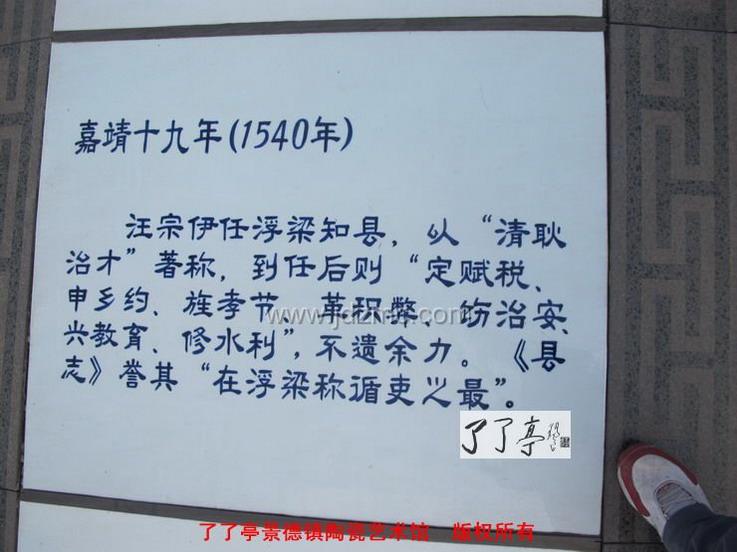 嘉靖十九年(1540年)
汪宗伊任浮梁知县，以“清耿
治才”著称，到任后则“定赋税、
申乡约、旌孝节、革积弊、饬治安、
兴教育、修水利”，不遗余力。《县
志》誉其“在浮梁称循吏之最”。
了了亭
了了亭景德镇陶瓷艺术馆 版权所有